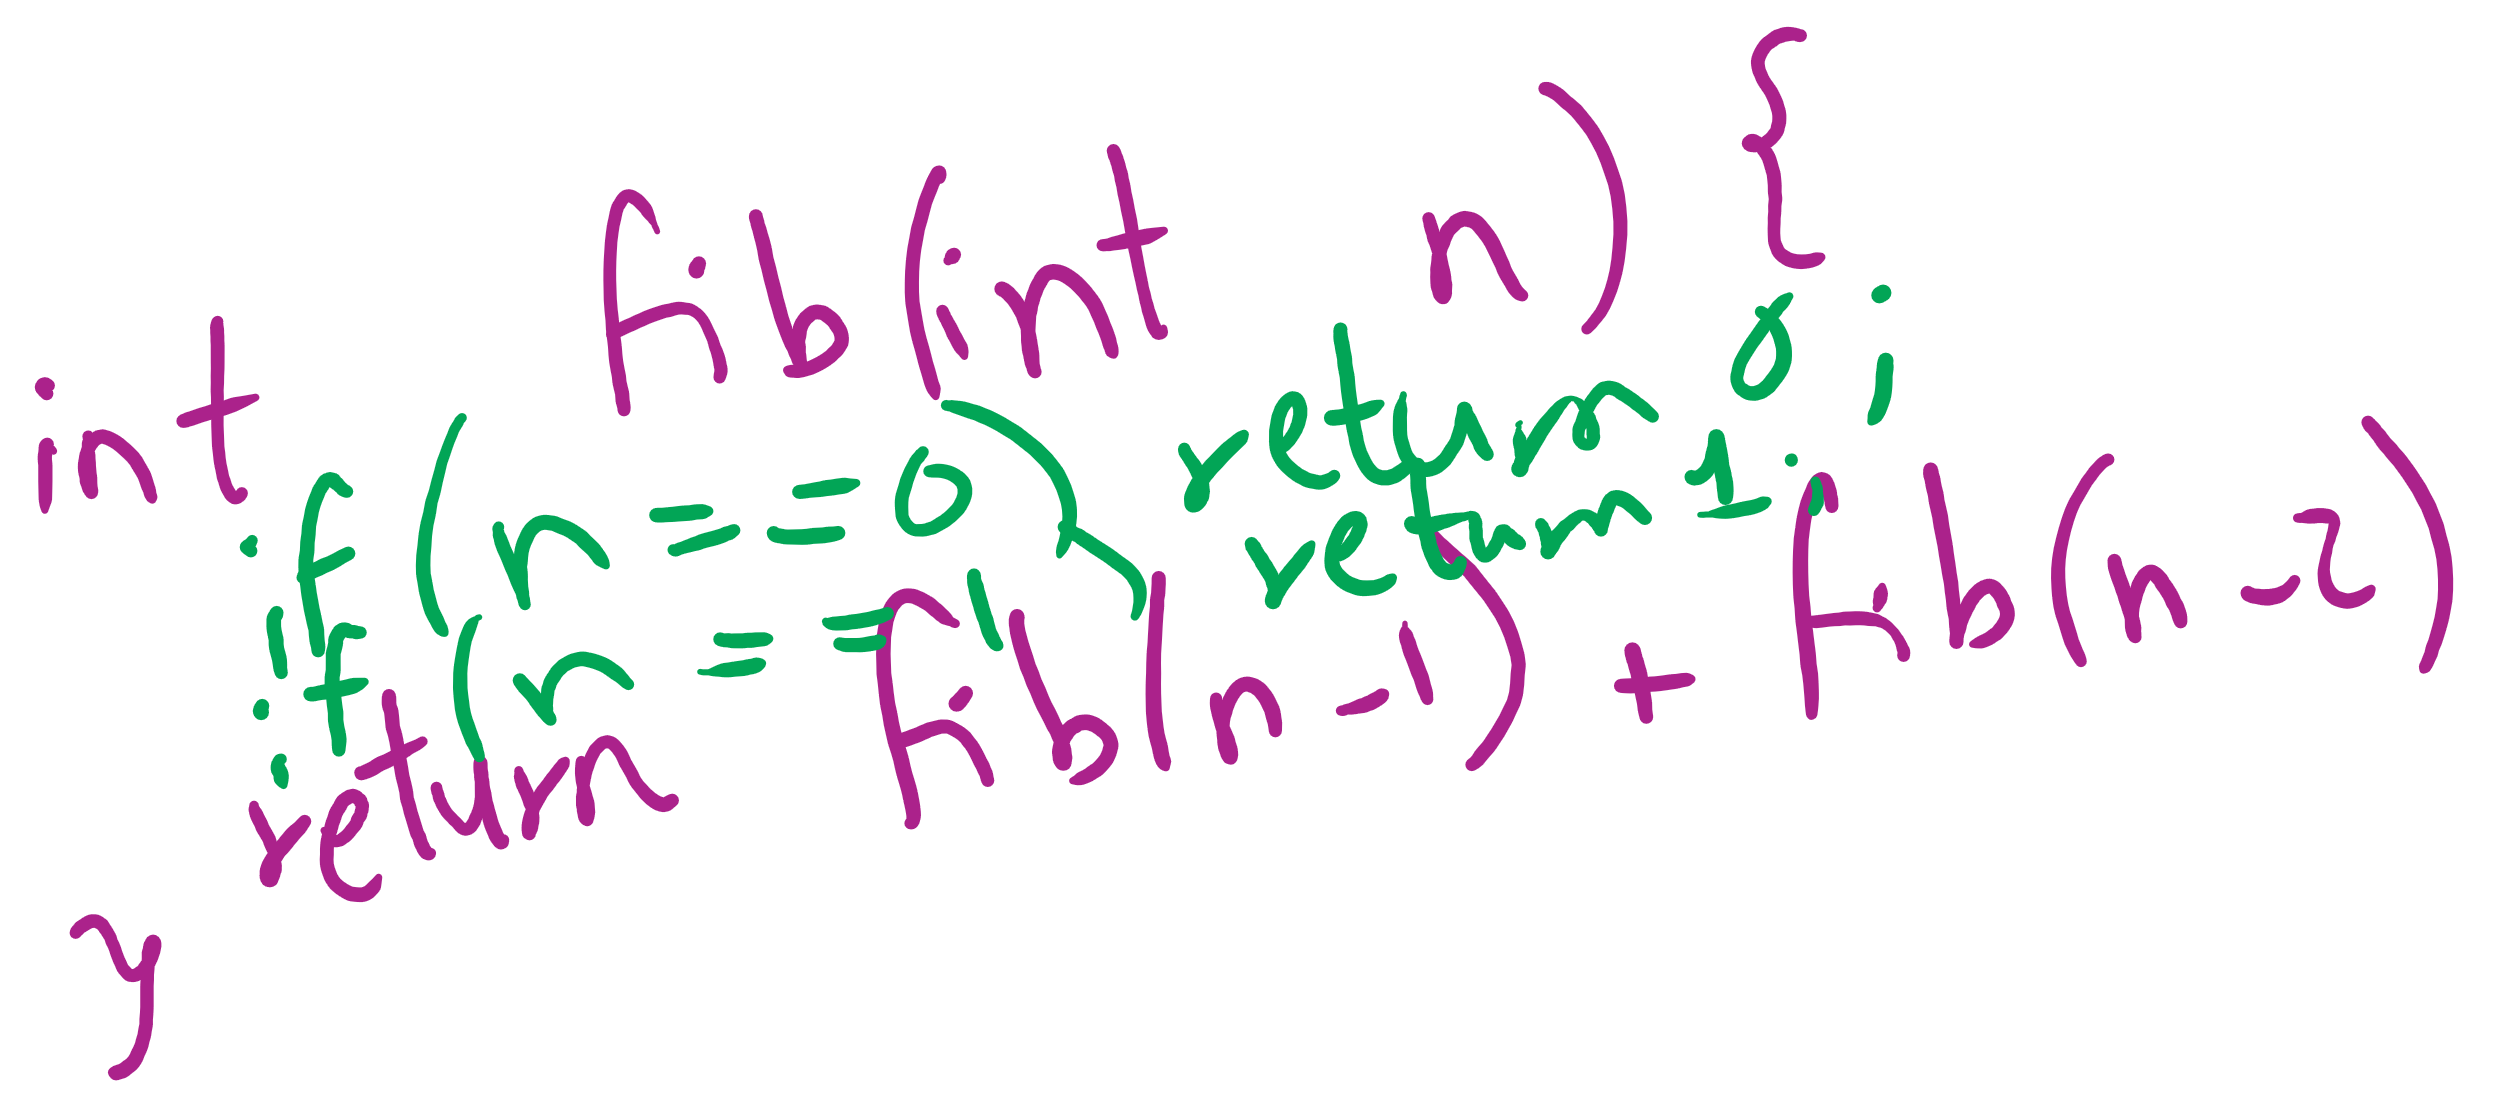 int fib(int n) {
if (n == 0) return 0;
if (n == 1) return 1;
return fib(n-1) + fib(n-2)
}